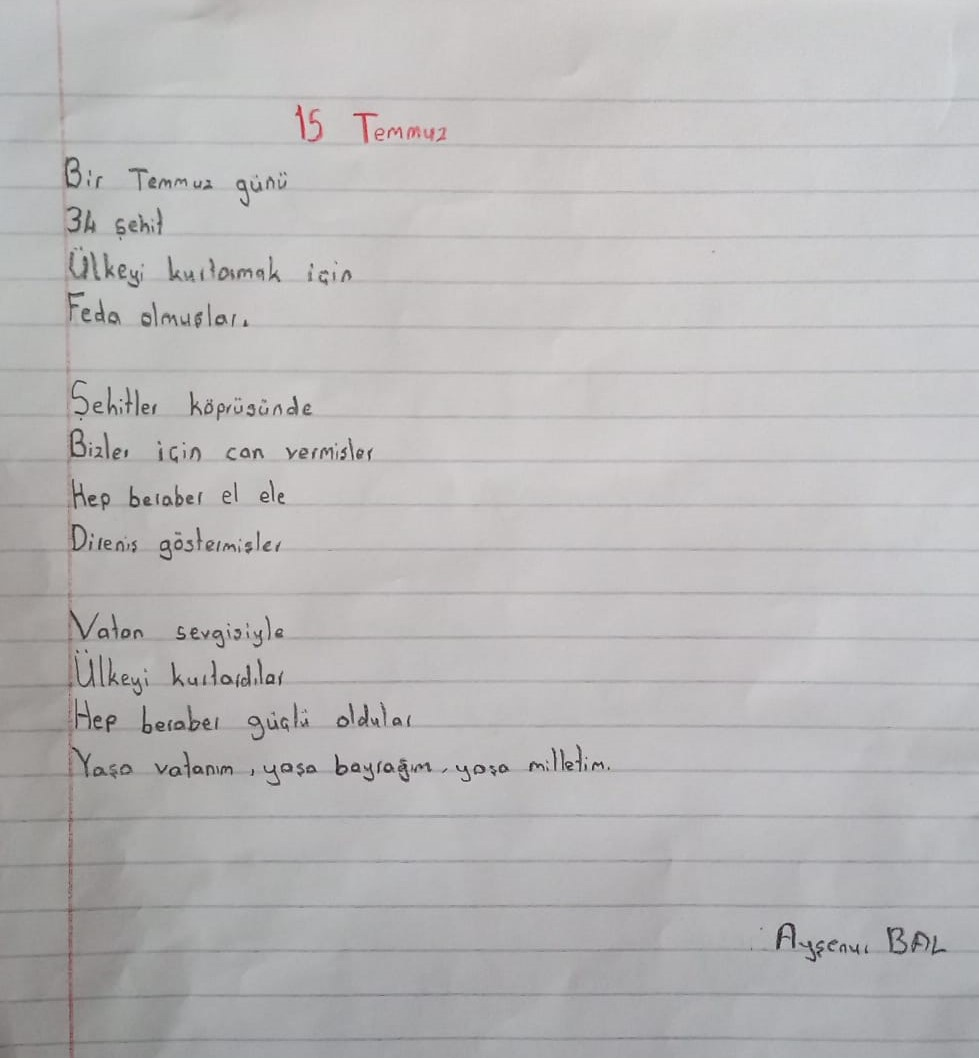 15 Temmuz
Bir Temmuz günü
34 şehit
Ülkeyi kurtarmak için
Feda olmuşlar.
Şehitler köprüsünde
Bizler için can vermişler
Hep beraber el ele
Direniş göstermişler
Vatan sevgisiyle
Ülkeyi kurtardılar
Hep beraber güçlü oldular
Yaşa vatanım, yaşa bayrağım, yaşa milletim.
Ayşenur BAL